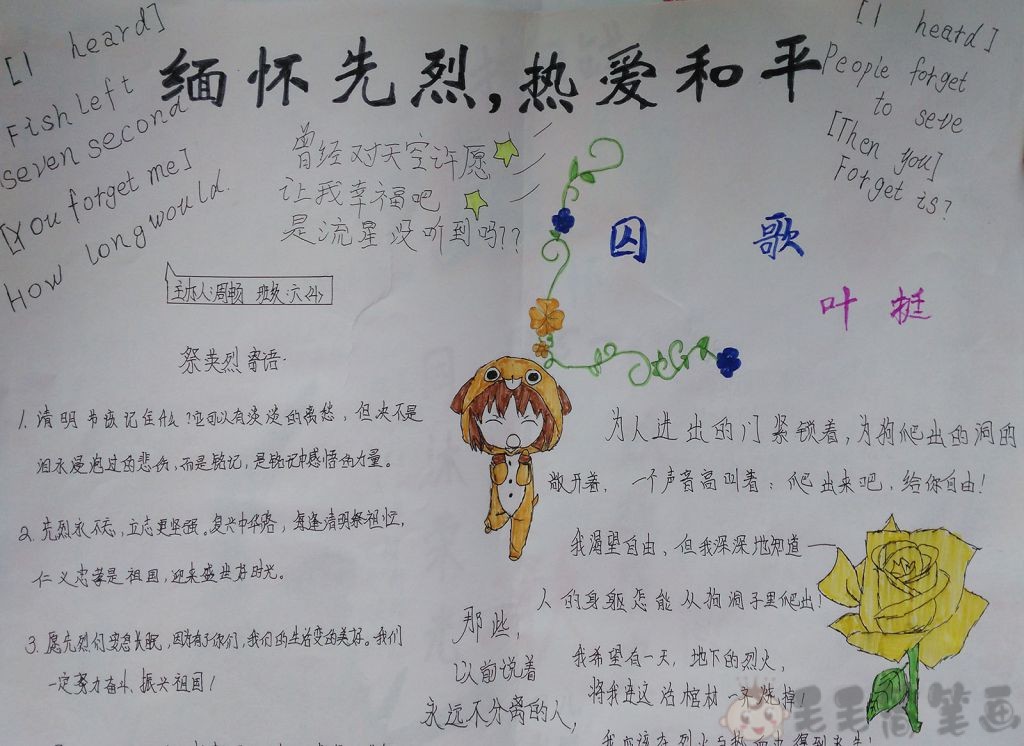 缅怀先烈，热爱和平
[I heard]
Fish left
seven second
[You forget me]
How long would.
[I heard]
People forget
to seve
[Then you]
Forget is?
曾经对天空许愿
让我幸福吧
是流星没听到吗??
主办人:周畅 班级:六〈4〉
囚歌
叶挺
祭英烈寄语.
1. 清明节该记住什么?它可以有淡淡的离愁，但决不是
泪水浸泡过的悲伤，而是铭记，是铭记中感悟的力量。
2. 先烈永不忘，立志更坚强。复兴中华路，每逢清明祭祖忙，
仁义忠孝是祖国，迎来盛世好时光。
3. 愿先烈们安息长眠，因为有了你们，我们的生活变的美好。我们
一定努力奋斗、振兴祖国！
那些，
以前说着
永远不分离的人，
为人进出的门紧锁着，为狗爬出的洞的
敞开着，一个声音高叫着：爬出来吧，给你自由！
我渴望自由，但我深深地知道——
人的身躯怎能从狗洞子里爬出！
我希望有一天，地下的烈火，
将我连这活棺材一齐烧掉！
我应该在烈火与热血中得到永生！
毛毛简笔画